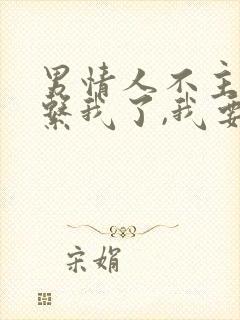 男情人不主
繫我了,我要
宋娟